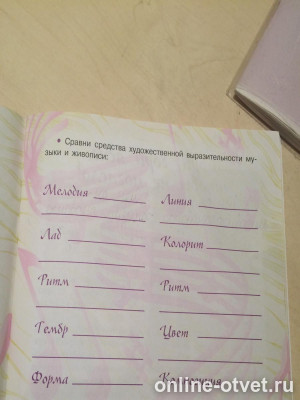 * Сравни средства художественной выразительности му-
зыки и живописи:
Мелодия Линия
Лад Колорит
Ритм Ритм
Тембр Цвет
Форма Композиция
online-otvet.ru